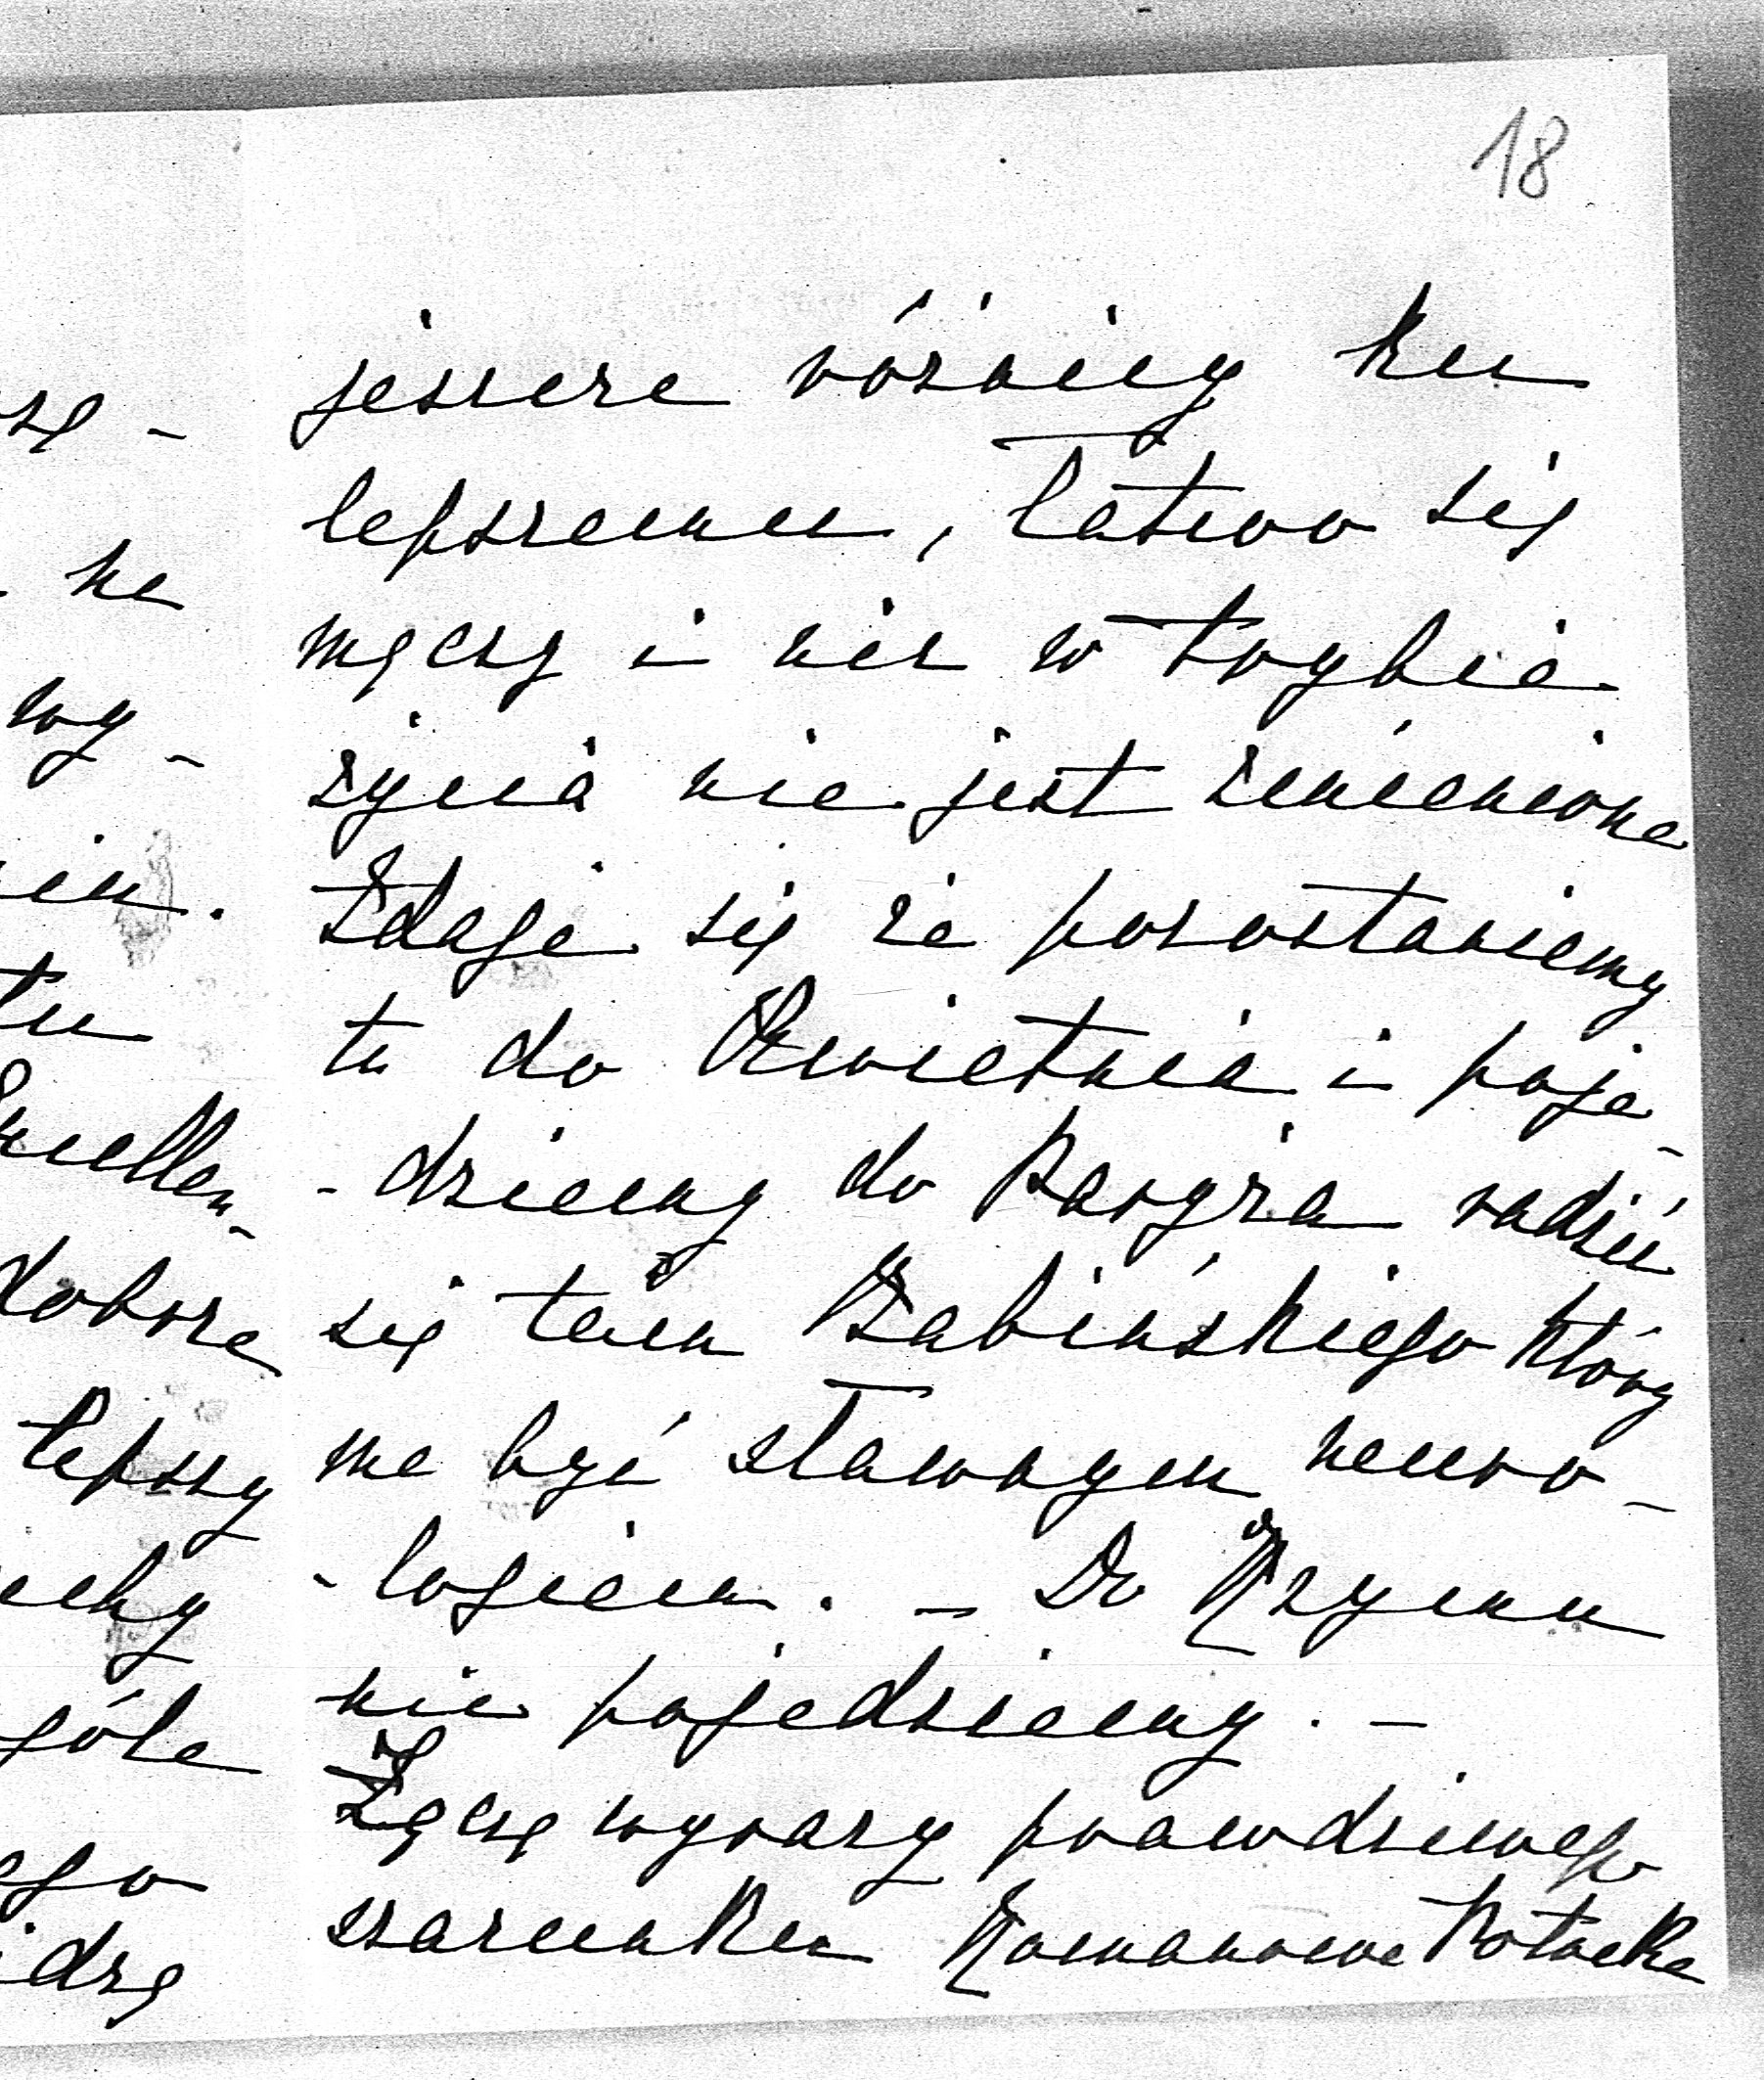 18
jeszcze różnicy ku
lepszemu, łatwo się
męczy i nic w trybie
życia nie jest zmienione
Zdaje się że pozostaniemy
tu do Kwietnia i poje-
-dziemy do Paryża radzić
się tam Babińskiego który
ma być sławnym neuro-
-logiem. - Do Rzymu
nie pojedziemy. -
Łączę wyrazy prawdziwego
szacunku Romanowa Potocka
na
wy-
tu
dobrze
lepszy